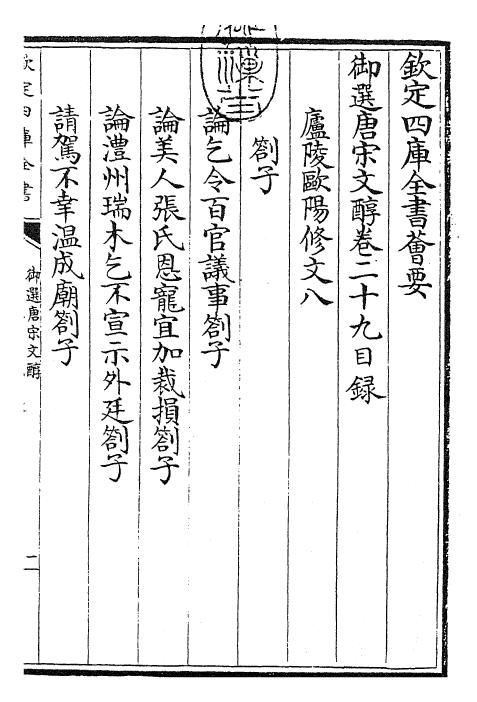 欽定四庫全書薈要
御選唐宋文醇卷二十九目録
廬陵歐陽修文八
劄子
論乞令百官議事劄子
論美人張氏恩寵宜加裁損劄子
論澧州瑞木乞不宣示外廷劄子
請駕不幸温成廟劄子
欽定四庫全書
御選唐宋文醇